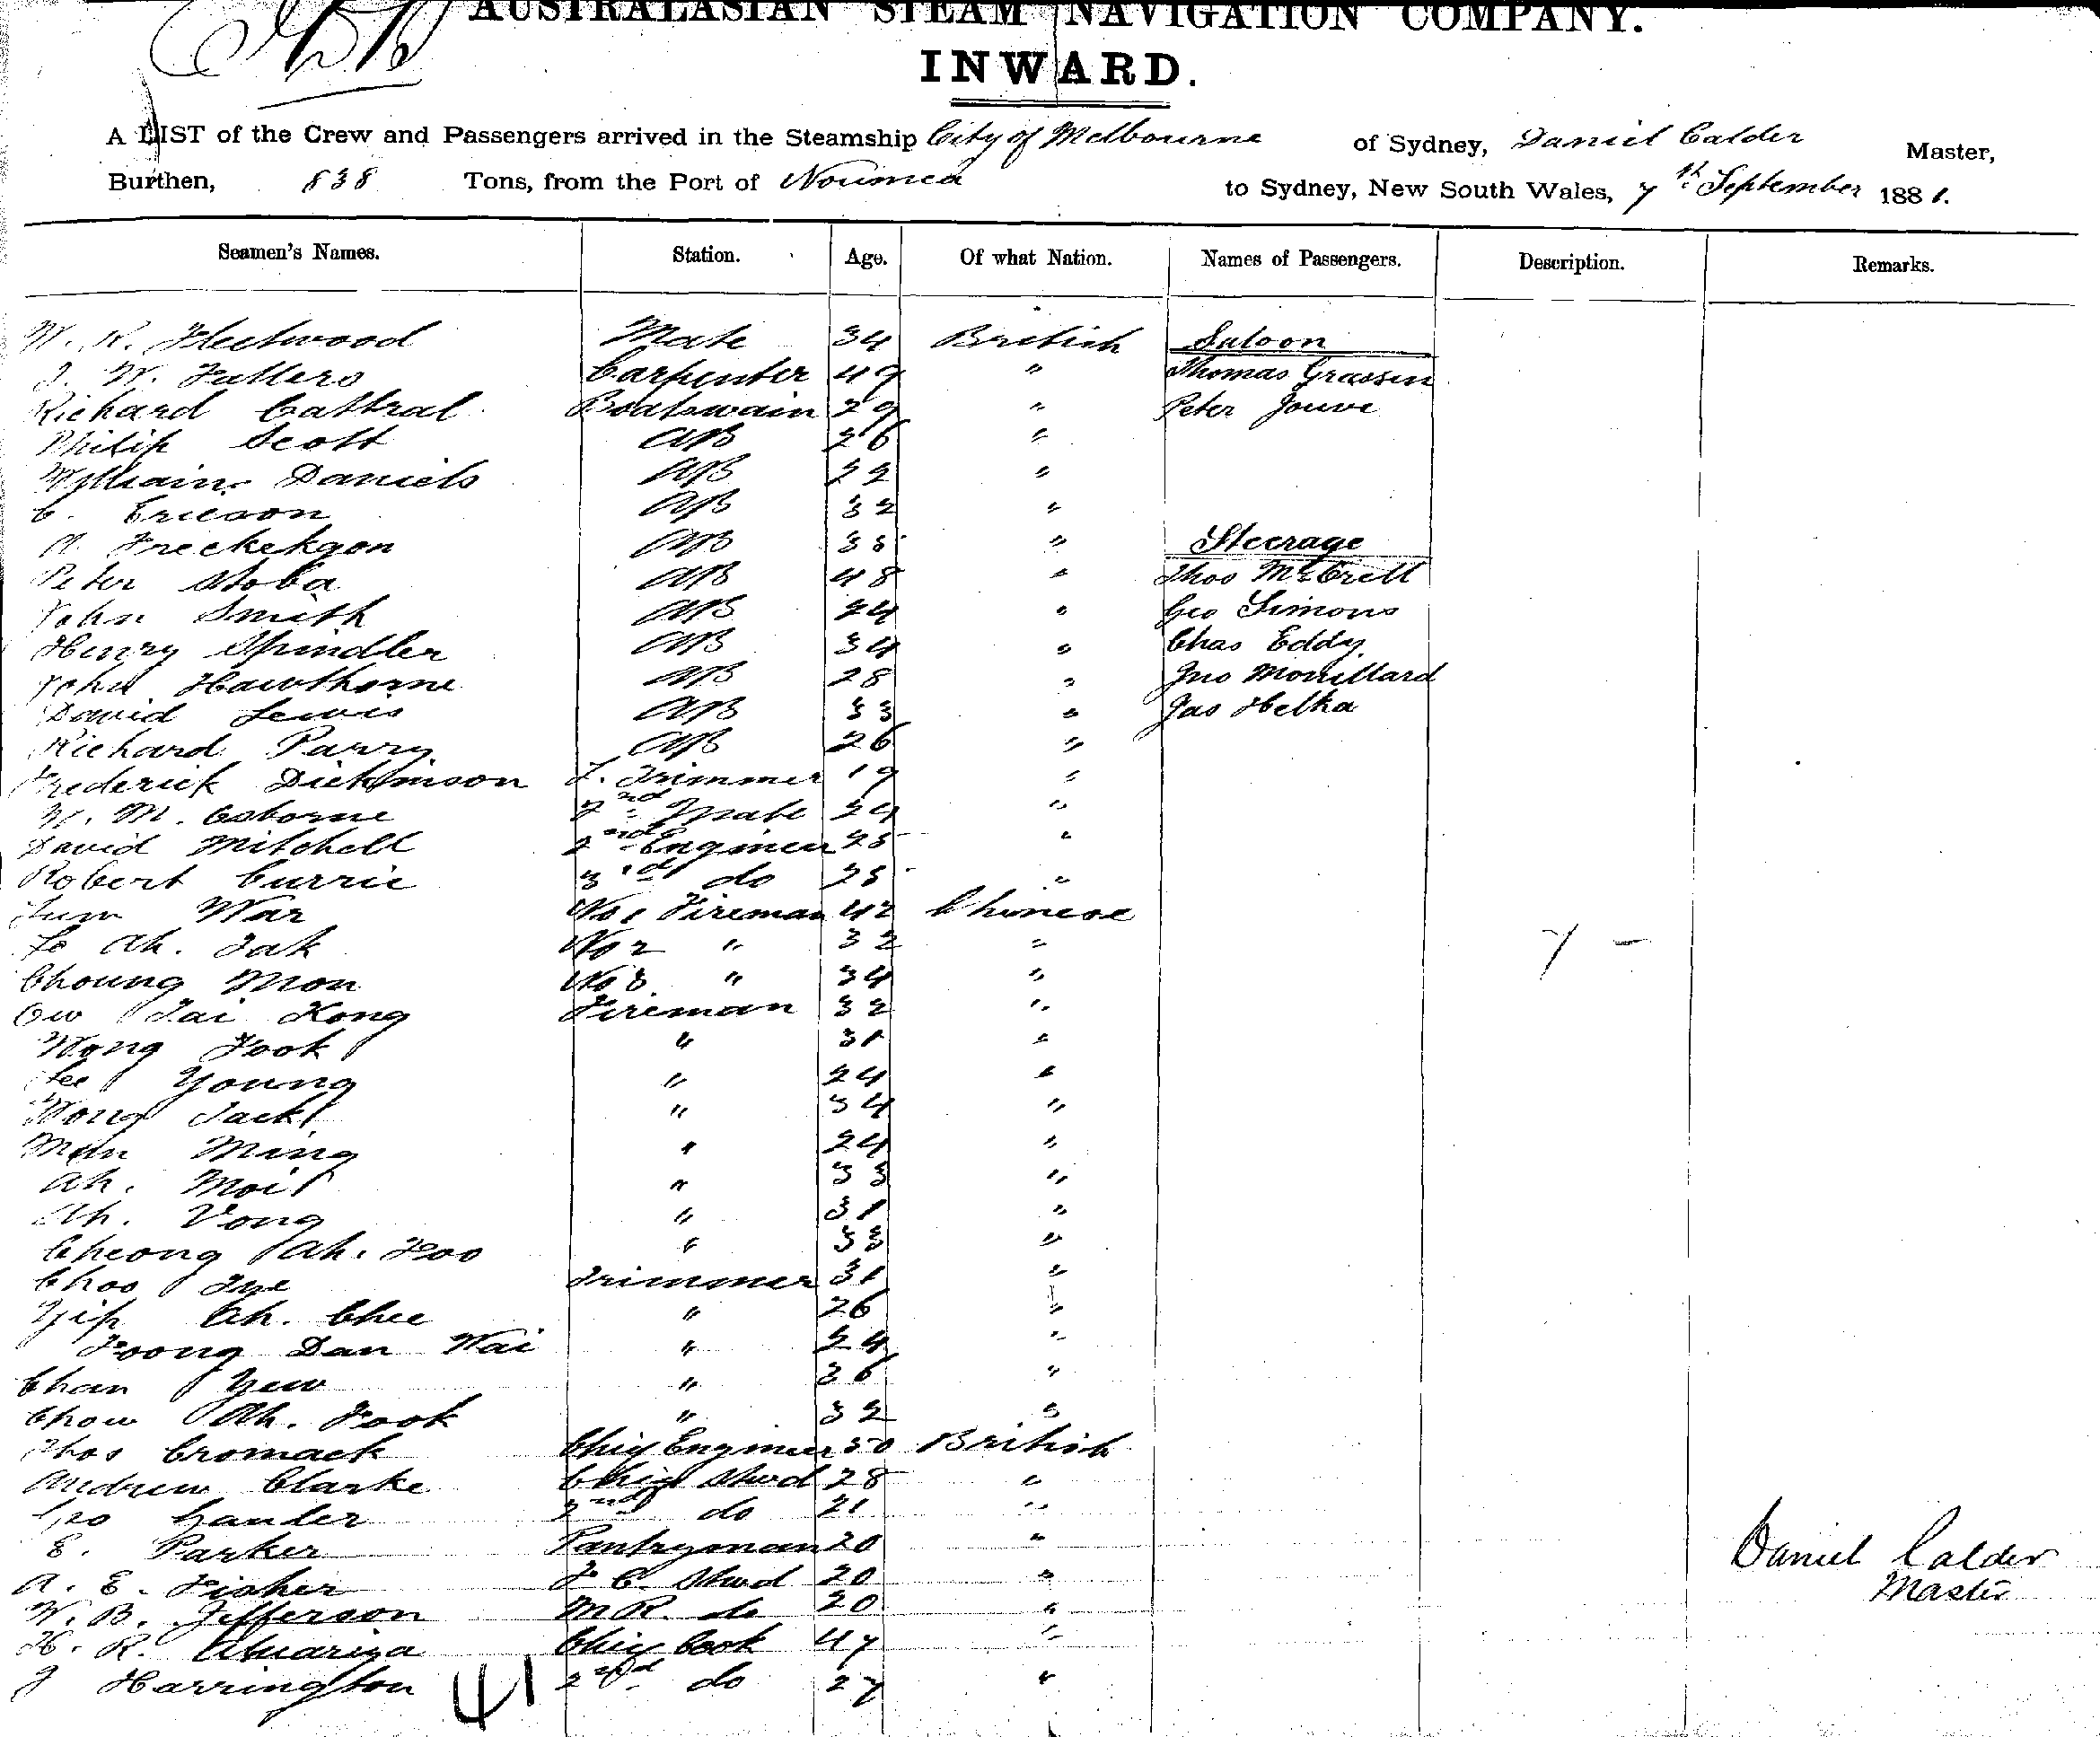 AUSTRALASIAN STEAM NAVIGATION COMPANY.
INWARD.
A LIST of the Crew and Passengers arrived in the Steamship City of Melbourne of Sydney, Daniel Calder Master,
Burthen, 838 Tons, from the Port of Noumea to Sydney, New South Wales, 7th September 1881.
Seamen's Names. Station. Age. Of what Nation. Names of Passengers. Description. Remarks.
W. R. Fleetwood Mate 34 British Saloon
J. W. Carpenter 49 " Thomas Grassin
Richard Cattral Boatswain 29 " Peter Jouve
Philip Scott AB 26 "
William Daniels AB 22 "
C. Ericson AB 32 "
A. AB 35 " Steerage
Peter AB 48 " Thos McCrell
John Smith AB 24 " Geo Simons
Henry Spindler AB 34 " Chas Eddy
John Hawthorne AB 28 " Jno Monillard
David Lewis AB 33 " Jas Helka
Richard Parry AB 26 "
Frederick Dickinson Trimmer 19 "
W. M. Osborne 2nd Mate 24 "
David Mitchell 2nd Engineer 25 "
Robert Currie 3rd do 25 "
War No 1 Fireman 42 Chinese
Ah. No 2 " 32 "
Choung Mon No 3 " 34 " 7 -
Ow Tai Kong Fireman 32 "
Wong Fook " 31 "
Lee Young " 24 "
Wong Jack " 34 "
Man Ming " 24 "
Ah. Moi " 33 "
Ah. Vong " 31 "
Cheong Ah. Foo " 33 "
Choo Trimmer 31 "
Yip Ah. Chee " 26 "
Foong Dan Wai " 24 "
Chan Yew " 36 "
Chow Ah. Fook " 32 "
Thos Cromack Chief Engineer 50 British
Andrew Clarke Chief Stwd 28 "
Geo Gander 2nd do 21 "
E. Parker Pantryman 20 "
A. E. Fisher F C. Stwd 20 "
W. B. Jefferson M R. do 20 "
H. R. Chief Cook 47 "
J Harrington 2nd do 27 "
41
Daniel Calder
Master